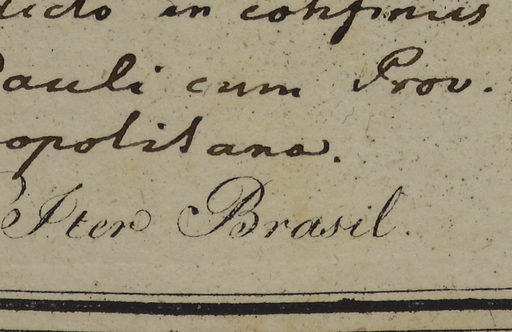 dicto in confinus
Pauli cum Prov.
opolitana.
Iter Brasil.